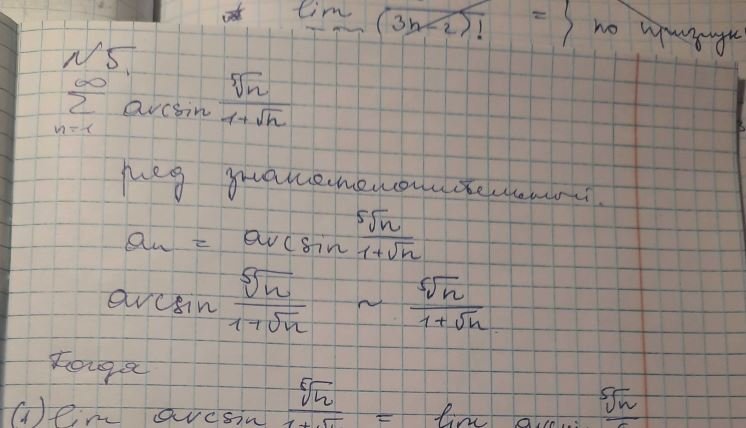 lim (3n-2)! = } по признак
N5.
∞ ∑ n=1 arcsin ⁵√n / 1+√n
ряд знакоположительный.
an = arcsin ⁵√n / 1+√n
arcsin ⁵√n / 1+√n ~ ⁵√n / 1+√n
Тогда
(1) lim arcsin ⁵√n / 1+√n = lim ⁵√n